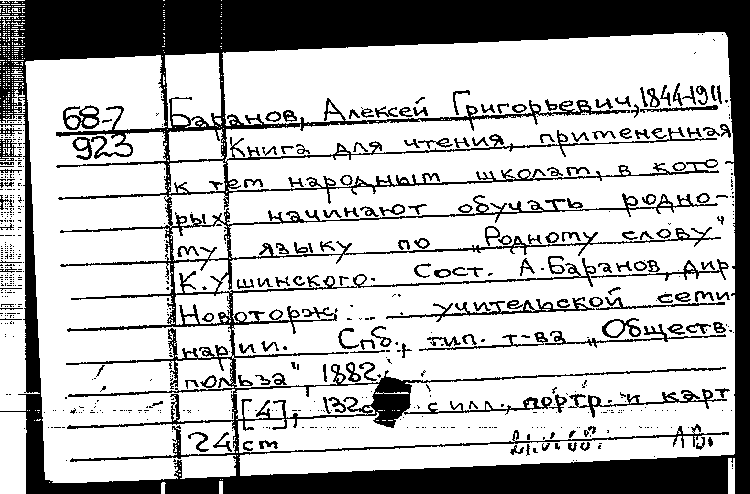 68-7 Баранов, Алексей Григорьевич, 1844-1911.
923 Книга для чтения, примененная
к тем народным школам, в кото-
рых начинают обучать родно-
му языку по „Родному слову"
К. Ушинского. Сост. А. Баранов, дир.
Новоторж. учительской семи
нарии. Спб., тип. т-ва „Обществ.
польза", 1882.
[4], 132 с. с илл., портр. и карт
24 см